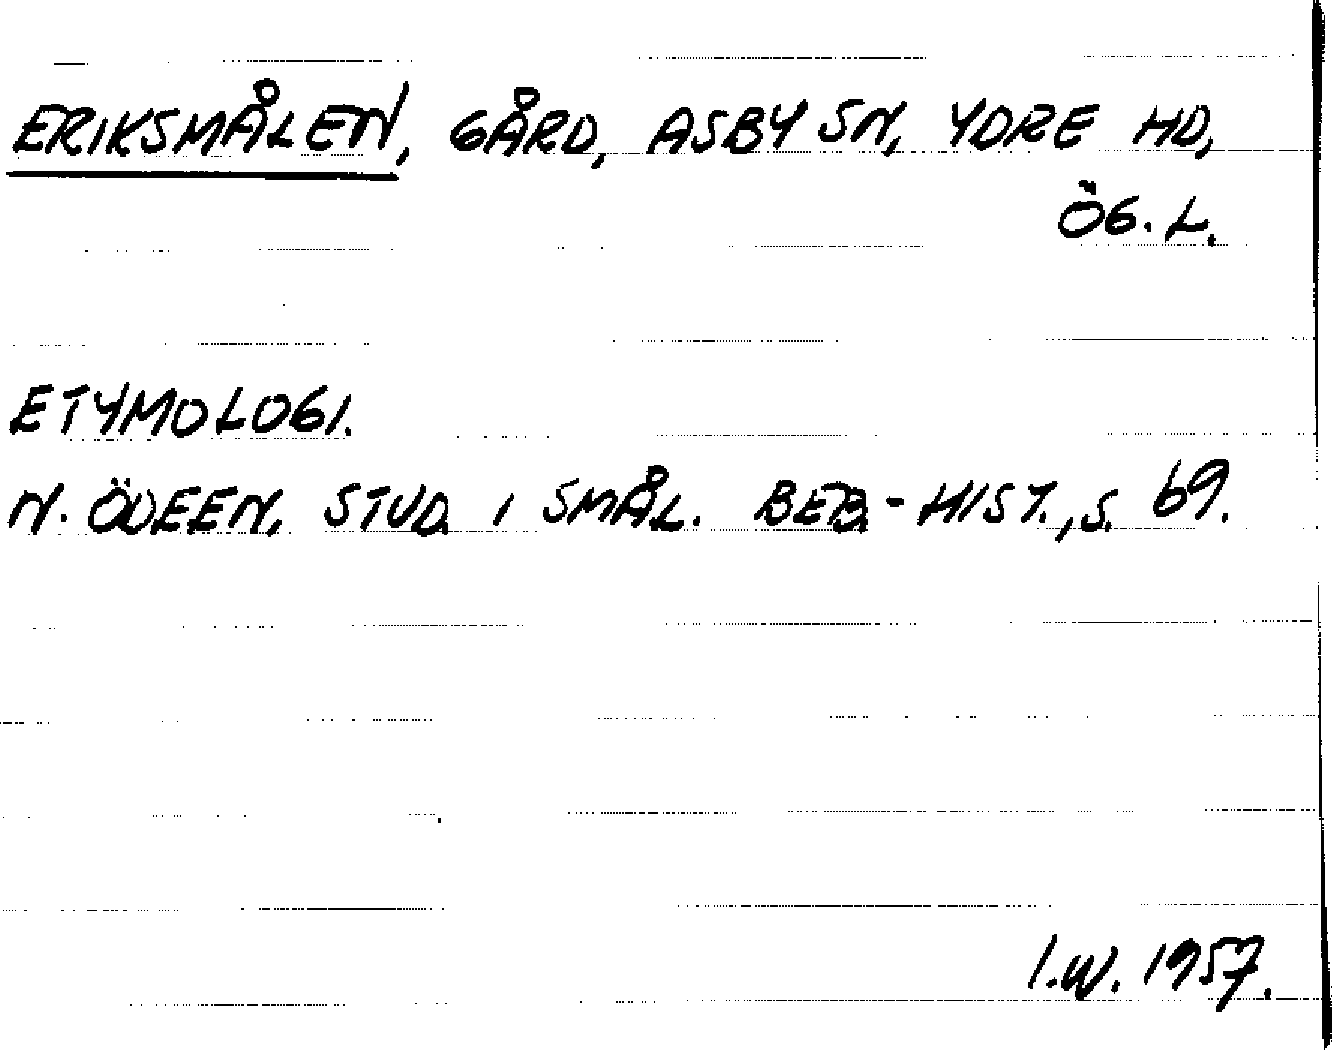 ERIKSMÅLEN, GÅRD, ASBY SN, YDRE HD,
ÖG. L.
ETYMOLOGI.
N. ÖDEEN, STUD. I SMÅL. BEB.-HIST., S. 69.
I.W. 1957.